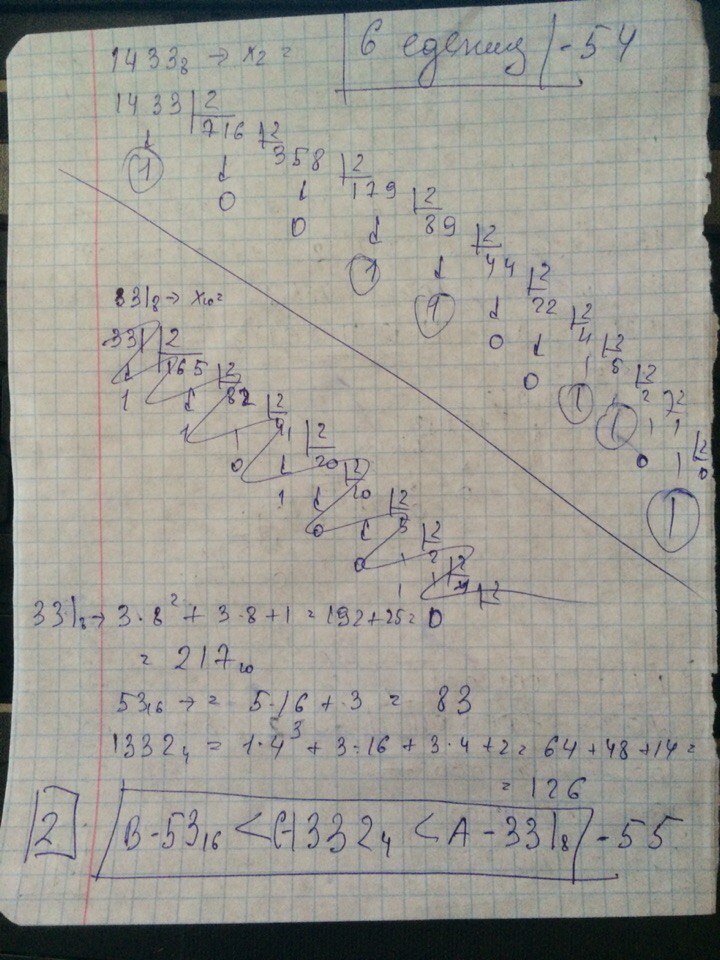 1433₈ → x₂ =
6 едениц -54
1433 2
716 2
1
358 2
0
179 2
0
89 2
1
44 2
1
22 2
0
0
331₈ → x₁₀ =
331 2
165 2
1
82 2
1
41 2
0
20 2
1
10 2
0
5 2
0
2 2
1
331₈ → 3·8² + 3·8 + 1 = 192 + 25 =
= 217₁₀
53₁₆ → = 5·16 + 3 = 83
1332₄ = 1·4³ + 3·16 + 3·4 + 2 = 64 + 48 + 14 =
= 126
2 B - 53₁₆ < C-1332₄ < A - 331₈ - 55